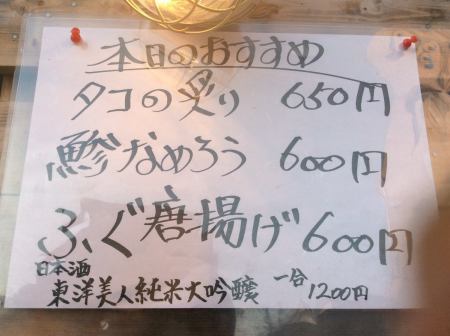 本日のおすすめ
タコの炙り 650円
鯵なめろう 600円
ふぐ唐揚げ 600円
日本酒
東洋美人純米大吟醸 一合 1200円